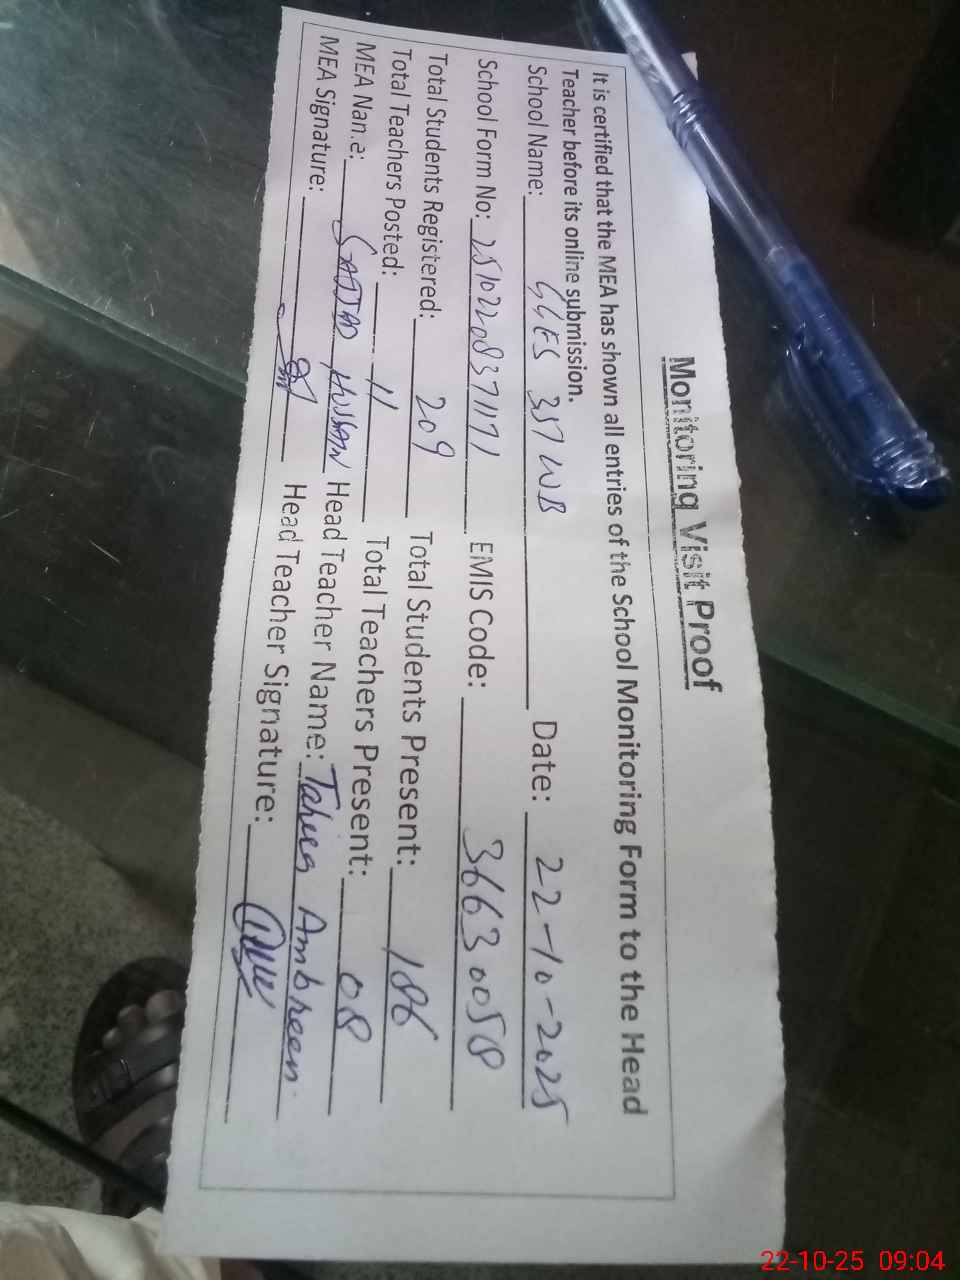 Monitoring Visit Proof
It is certified that the MEA has shown all entries of the School Monitoring Form to the Head
Teacher before its online submission.
School Name: GGES 357 WB Date: 22-10-2025
School Form No: EMIS Code: 36630058
Total Students Registered: 209 Total Students Present: 186
Total Teachers Posted: 11 Total Teachers Present: 08
MEA Nan.e: SAJJAD HUSSAIN Head Teacher Name: Tahira Ambreen.
MEA Signature: Head Teacher Signature:
22-10-25 09:04